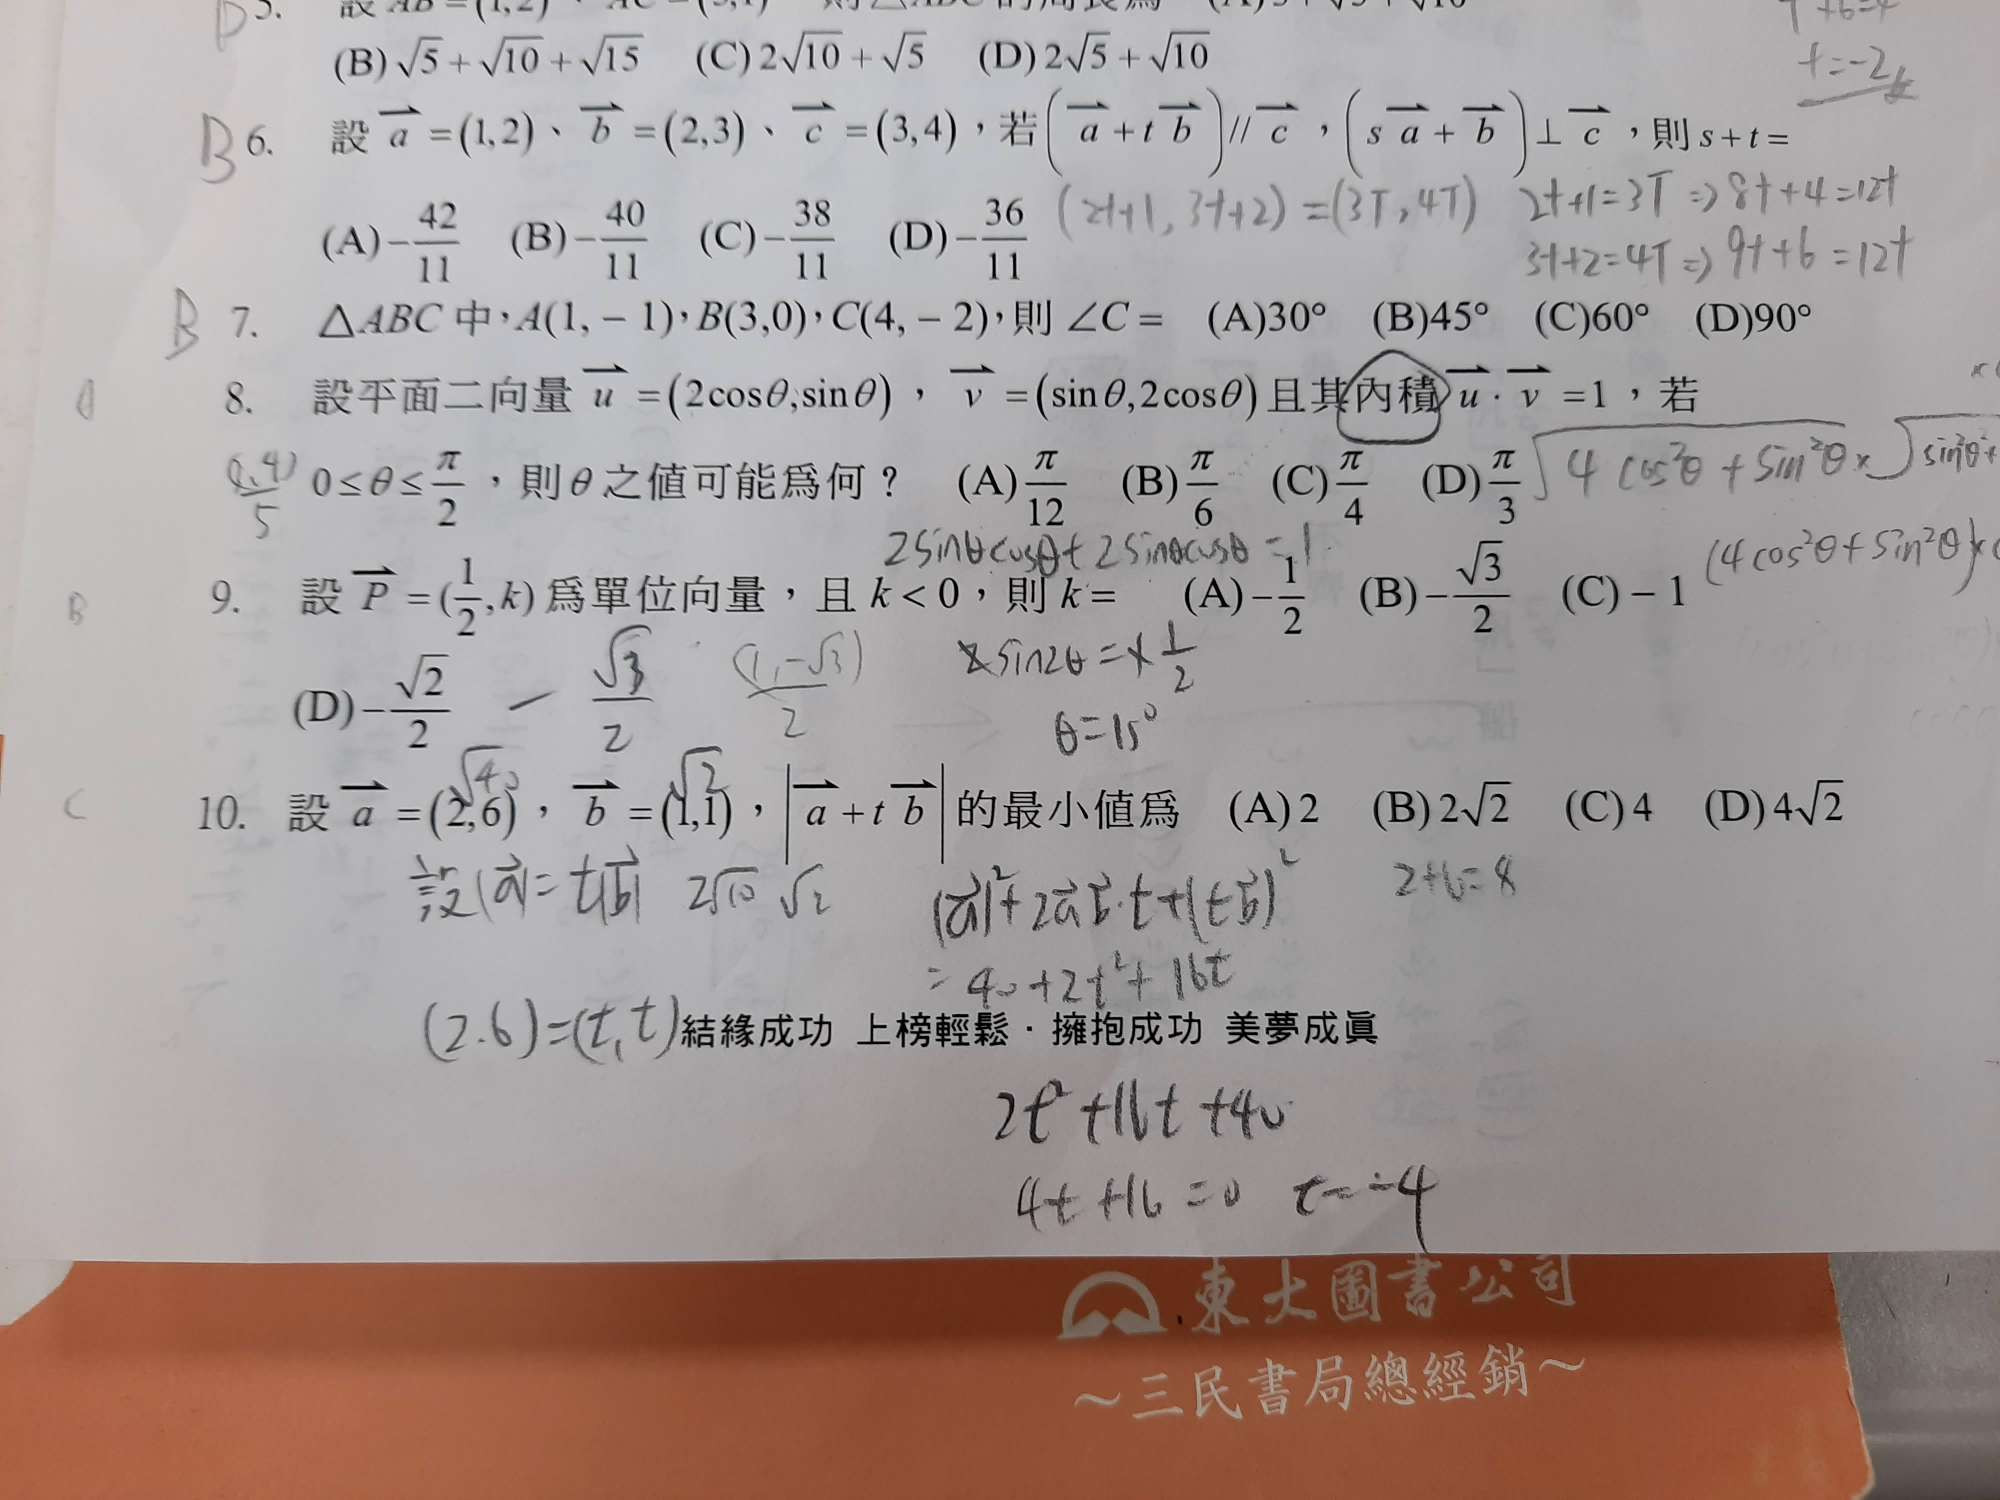 D 5. 設 AB=(1,2)、AC=(3,1) 則△ABC 的周長為 (A)5+√5+√10
(B)√5+√10+√15 (C)2√10+√5 (D)2√5+√10
t=-2
B 6. 設 a⃗=(1,2)、b⃗=(2,3)、c⃗=(3,4),若(a⃗+t b⃗)//c⃗,(s a⃗+b⃗)⊥c⃗,則 s+t=
(A)-42/11 (B)-40/11 (C)-38/11 (D)-36/11
(2t+1, 3t+2)=(3T, 4T) 2t+1=3T⇒8t+4=12t
3t+2=4T⇒9t+6=12t
B 7. △ABC 中,A(1,-1),B(3,0),C(4,-2),則 ∠C= (A)30° (B)45° (C)60° (D)90°
8. 設平面二向量 u⃗=(2cosθ,sinθ), v⃗=(sinθ,2cosθ)且其內積 u⃗·v⃗=1,若
0≤θ≤π/2,則θ之值可能為何? (A)π/12 (B)π/6 (C)π/4 (D)π/3
√4cos²θ+sin²θ × √sin²θ+
5
2sinθcosθ+2sinθcosθ=1
(4cos²θ+sin²θ)×(
B 9. 設 P⃗=(1/2,k)為單位向量,且 k<0,則 k= (A)-1/2 (B)-√3/2 (C)-1
(D)-√2/2
-√3/2 (1,-√3)/2
sin2θ=1/2
θ=15°
√40 √2
C 10. 設 a⃗=(2,6), b⃗=(1,1),|a⃗+t b⃗|的最小值為 (A)2 (B)2√2 (C)4 (D)4√2
設|a⃗|=t|b⃗| 2√10 √2 |a⃗|²+2a⃗b⃗·t+(tb⃗)² 2+6=8
=40+2t²+16t
(2.6)=(t,t)
結緣成功 上榜輕鬆·擁抱成功 美夢成真
2t²+16t+40
4t+16=0 t=-4
東大圖書公司
~三民書局總經銷~